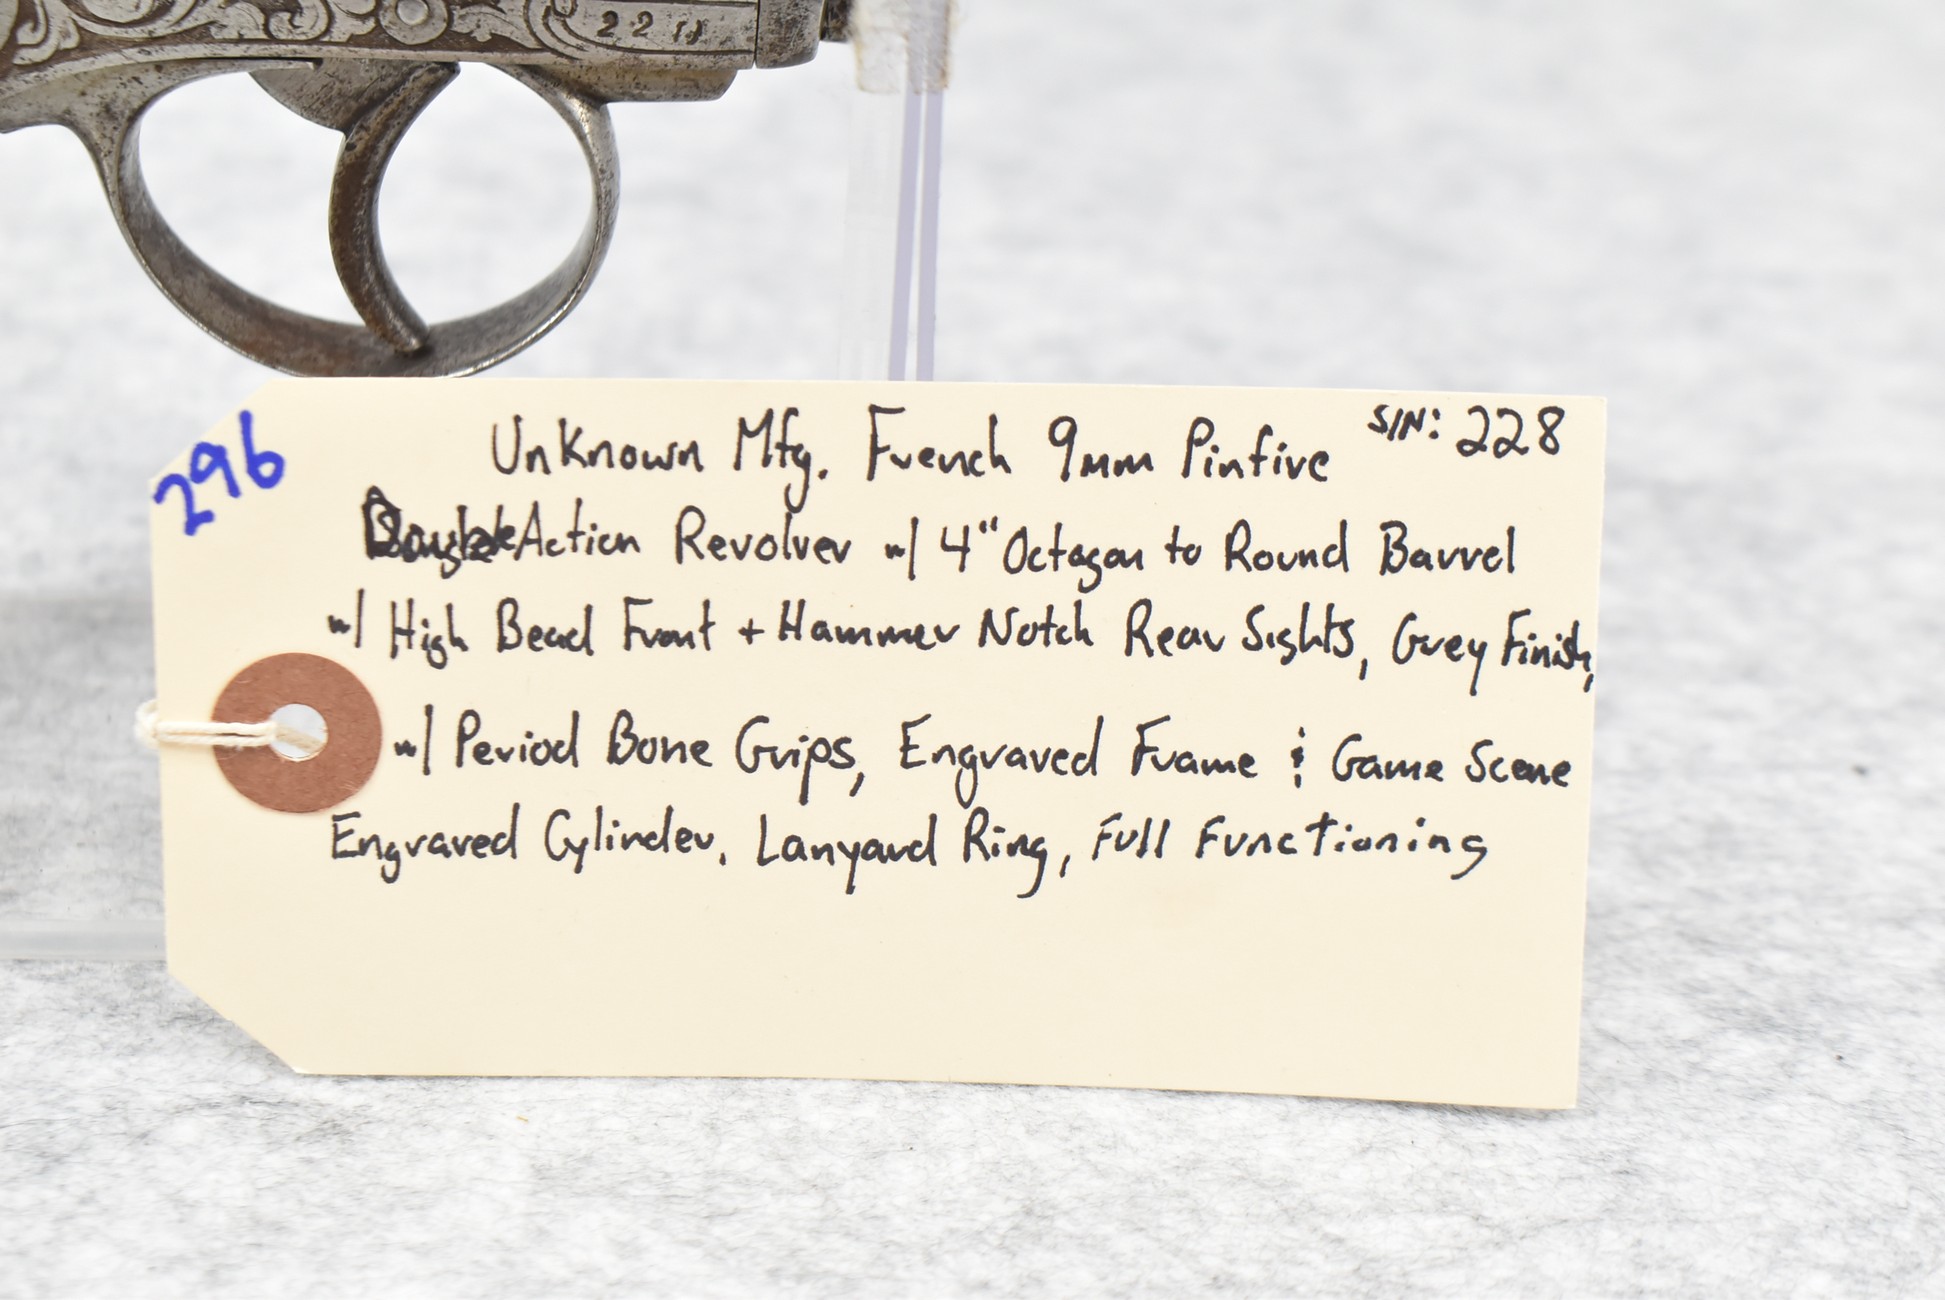 22
296
Unknown Mfg. French 9mm Pinfire S/N: 228
Double Action Revolver w/ 4" Octagon to Round Barrel
w/ High Bead Front + Hammer Notch Rear Sights, Grey Finish,
w/ Period Bone Grips, Engraved Frame & Game Scene
Engraved Cylinder, Lanyard Ring, Full Functioning